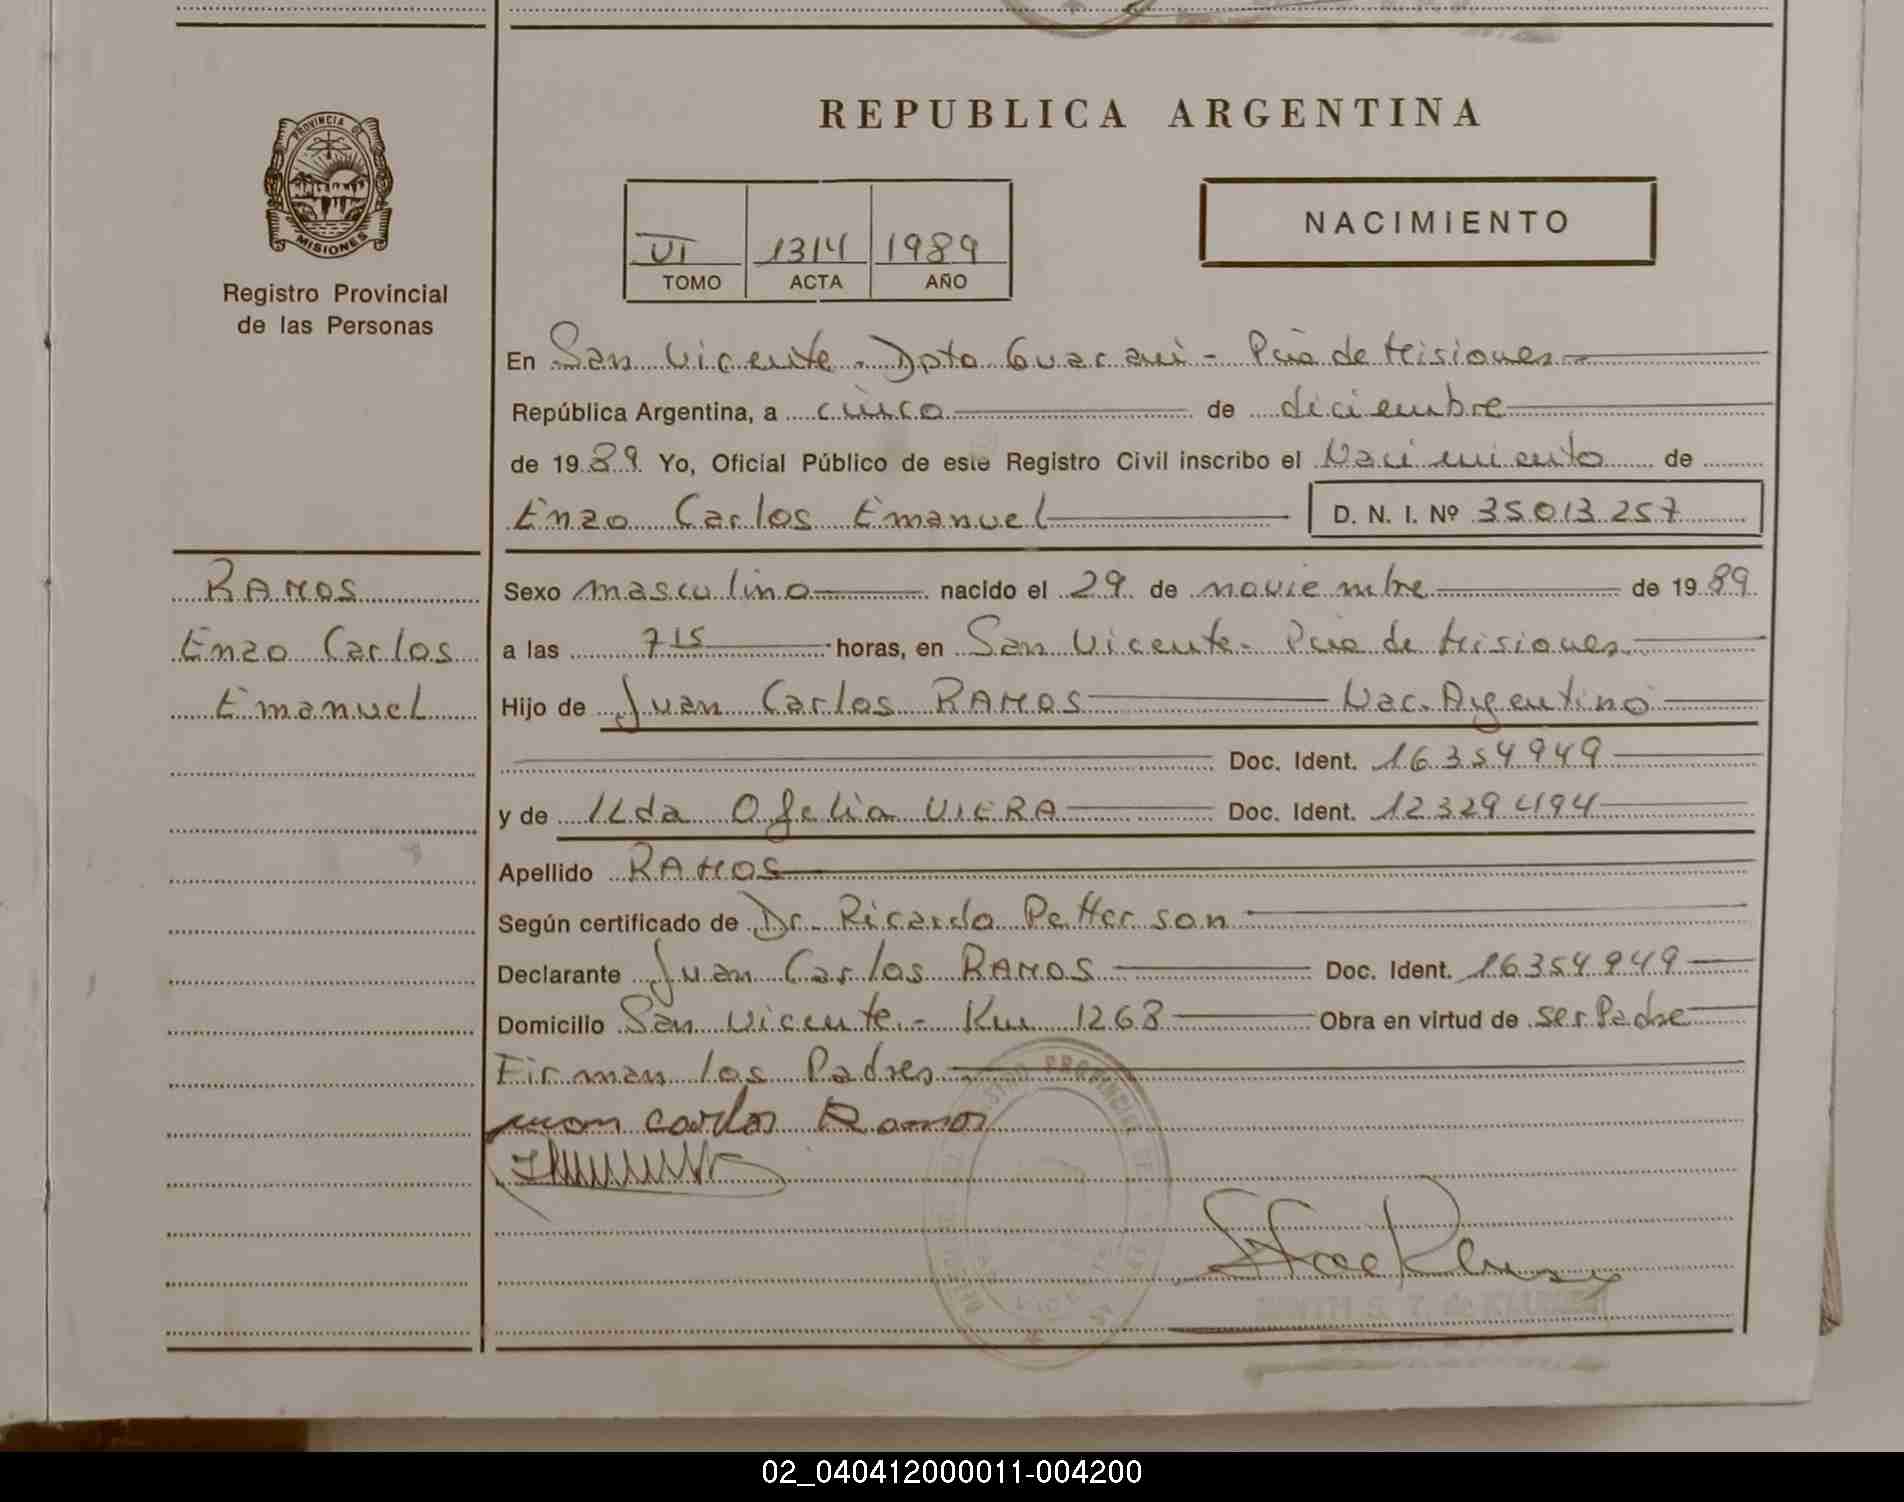 REPUBLICA ARGENTINA
PROVINCIA DE
MISIONES
Registro Provincial
de las Personas
VI 1314 1989
TOMO ACTA AÑO
NACIMIENTO
En San Vicente - Dpto Guaraní - Pcia de Misiones
República Argentina, a cinco de diciembre
de 1989 Yo, Oficial Público de este Registro Civil inscribo el Nacimiento de
Enzo Carlos Emanuel D. N. I. Nº 35013257
RAMOS
Enzo Carlos
Emanuel
Sexo masculino nacido el 29 de noviembre de 1989
a las 7 15 horas, en San Vicente - Pcia de Misiones
Hijo de Juan Carlos RAMOS Nac. Argentino
Doc. Ident. 16354949
y de Ilda Ofelia VIERA Doc. Ident. 12329494
Apellido RAMOS
Según certificado de Dr. Ricardo Petterson
Declarante Juan Carlos RAMOS Doc. Ident. 16354949
Domicilio San Vicente - Km 1268 Obra en virtud de ser Padre
Firman los Padres
Juan carlos Ramos
02_040412000011-004200